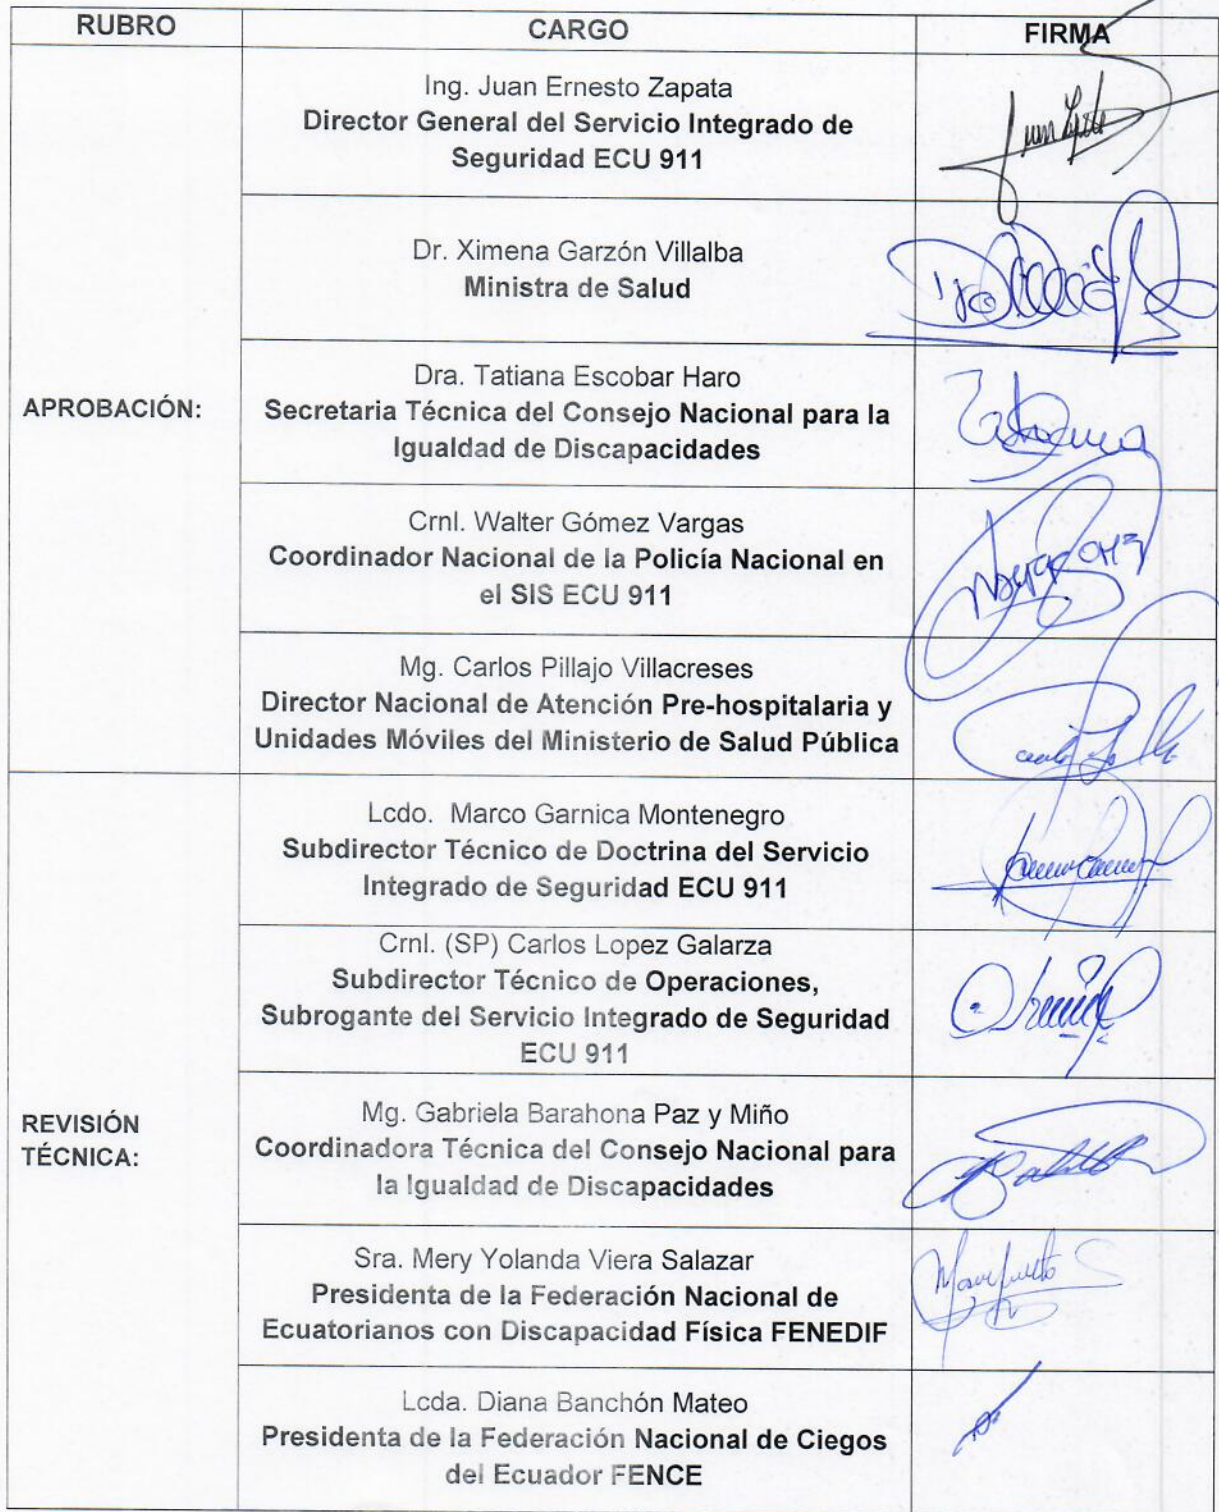 RUBRO
CARGO
FIRMA
APROBACIÓN:
Ing. Juan Ernesto Zapata
Director General del Servicio Integrado de
Seguridad ECU 911
Dr. Ximena Garzón Villalba
Ministra de Salud
Dra. Tatiana Escobar Haro
Secretaria Técnica del Consejo Nacional para la
Igualdad de Discapacidades
Crnl. Walter Gómez Vargas
Coordinador Nacional de la Policía Nacional en
el SIS ECU 911
Mg. Carlos Pillajo Villacreses
Director Nacional de Atención Pre-hospitalaria y
Unidades Móviles del Ministerio de Salud Pública
REVISIÓN
TÉCNICA:
Lcdo. Marco Garnica Montenegro
Subdirector Técnico de Doctrina del Servicio
Integrado de Seguridad ECU 911
Crnl. (SP) Carlos Lopez Galarza
Subdirector Técnico de Operaciones,
Subrogante del Servicio Integrado de Seguridad
ECU 911
Mg. Gabriela Barahona Paz y Miño
Coordinadora Técnica del Consejo Nacional para
la Igualdad de Discapacidades
Sra. Mery Yolanda Viera Salazar
Presidenta de la Federación Nacional de
Ecuatorianos con Discapacidad Física FENEDIF
Lcda. Diana Banchón Mateo
Presidenta de la Federación Nacional de Ciegos
del Ecuador FENCE